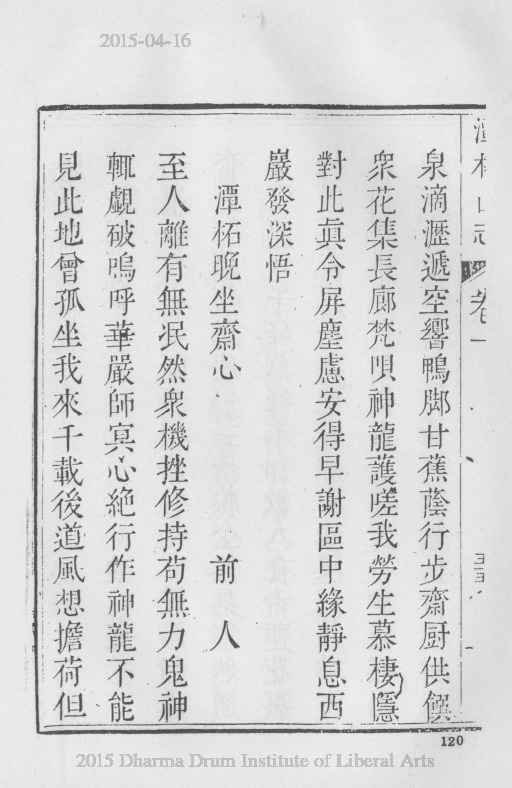 2015-04-16
潭柘山志 卷一
泉滴瀝遞空響鴨脚甘蕉蔭行步齋厨供饌
衆花集長廊梵唄神龍護嗟我勞生慕棲隱
對此眞令屏塵慮安得早謝區中緣靜息西
巖發深悟
潭柘晚坐齋心 前人
至人離有無泯然衆機挫修持苟無力鬼神
輒覷破嗚呼華嚴師冥心絶行作神龍不能
見此地曾孤坐我來千載後道風想擔荷但
120
2015 Dharma Drum Institute of Liberal Arts